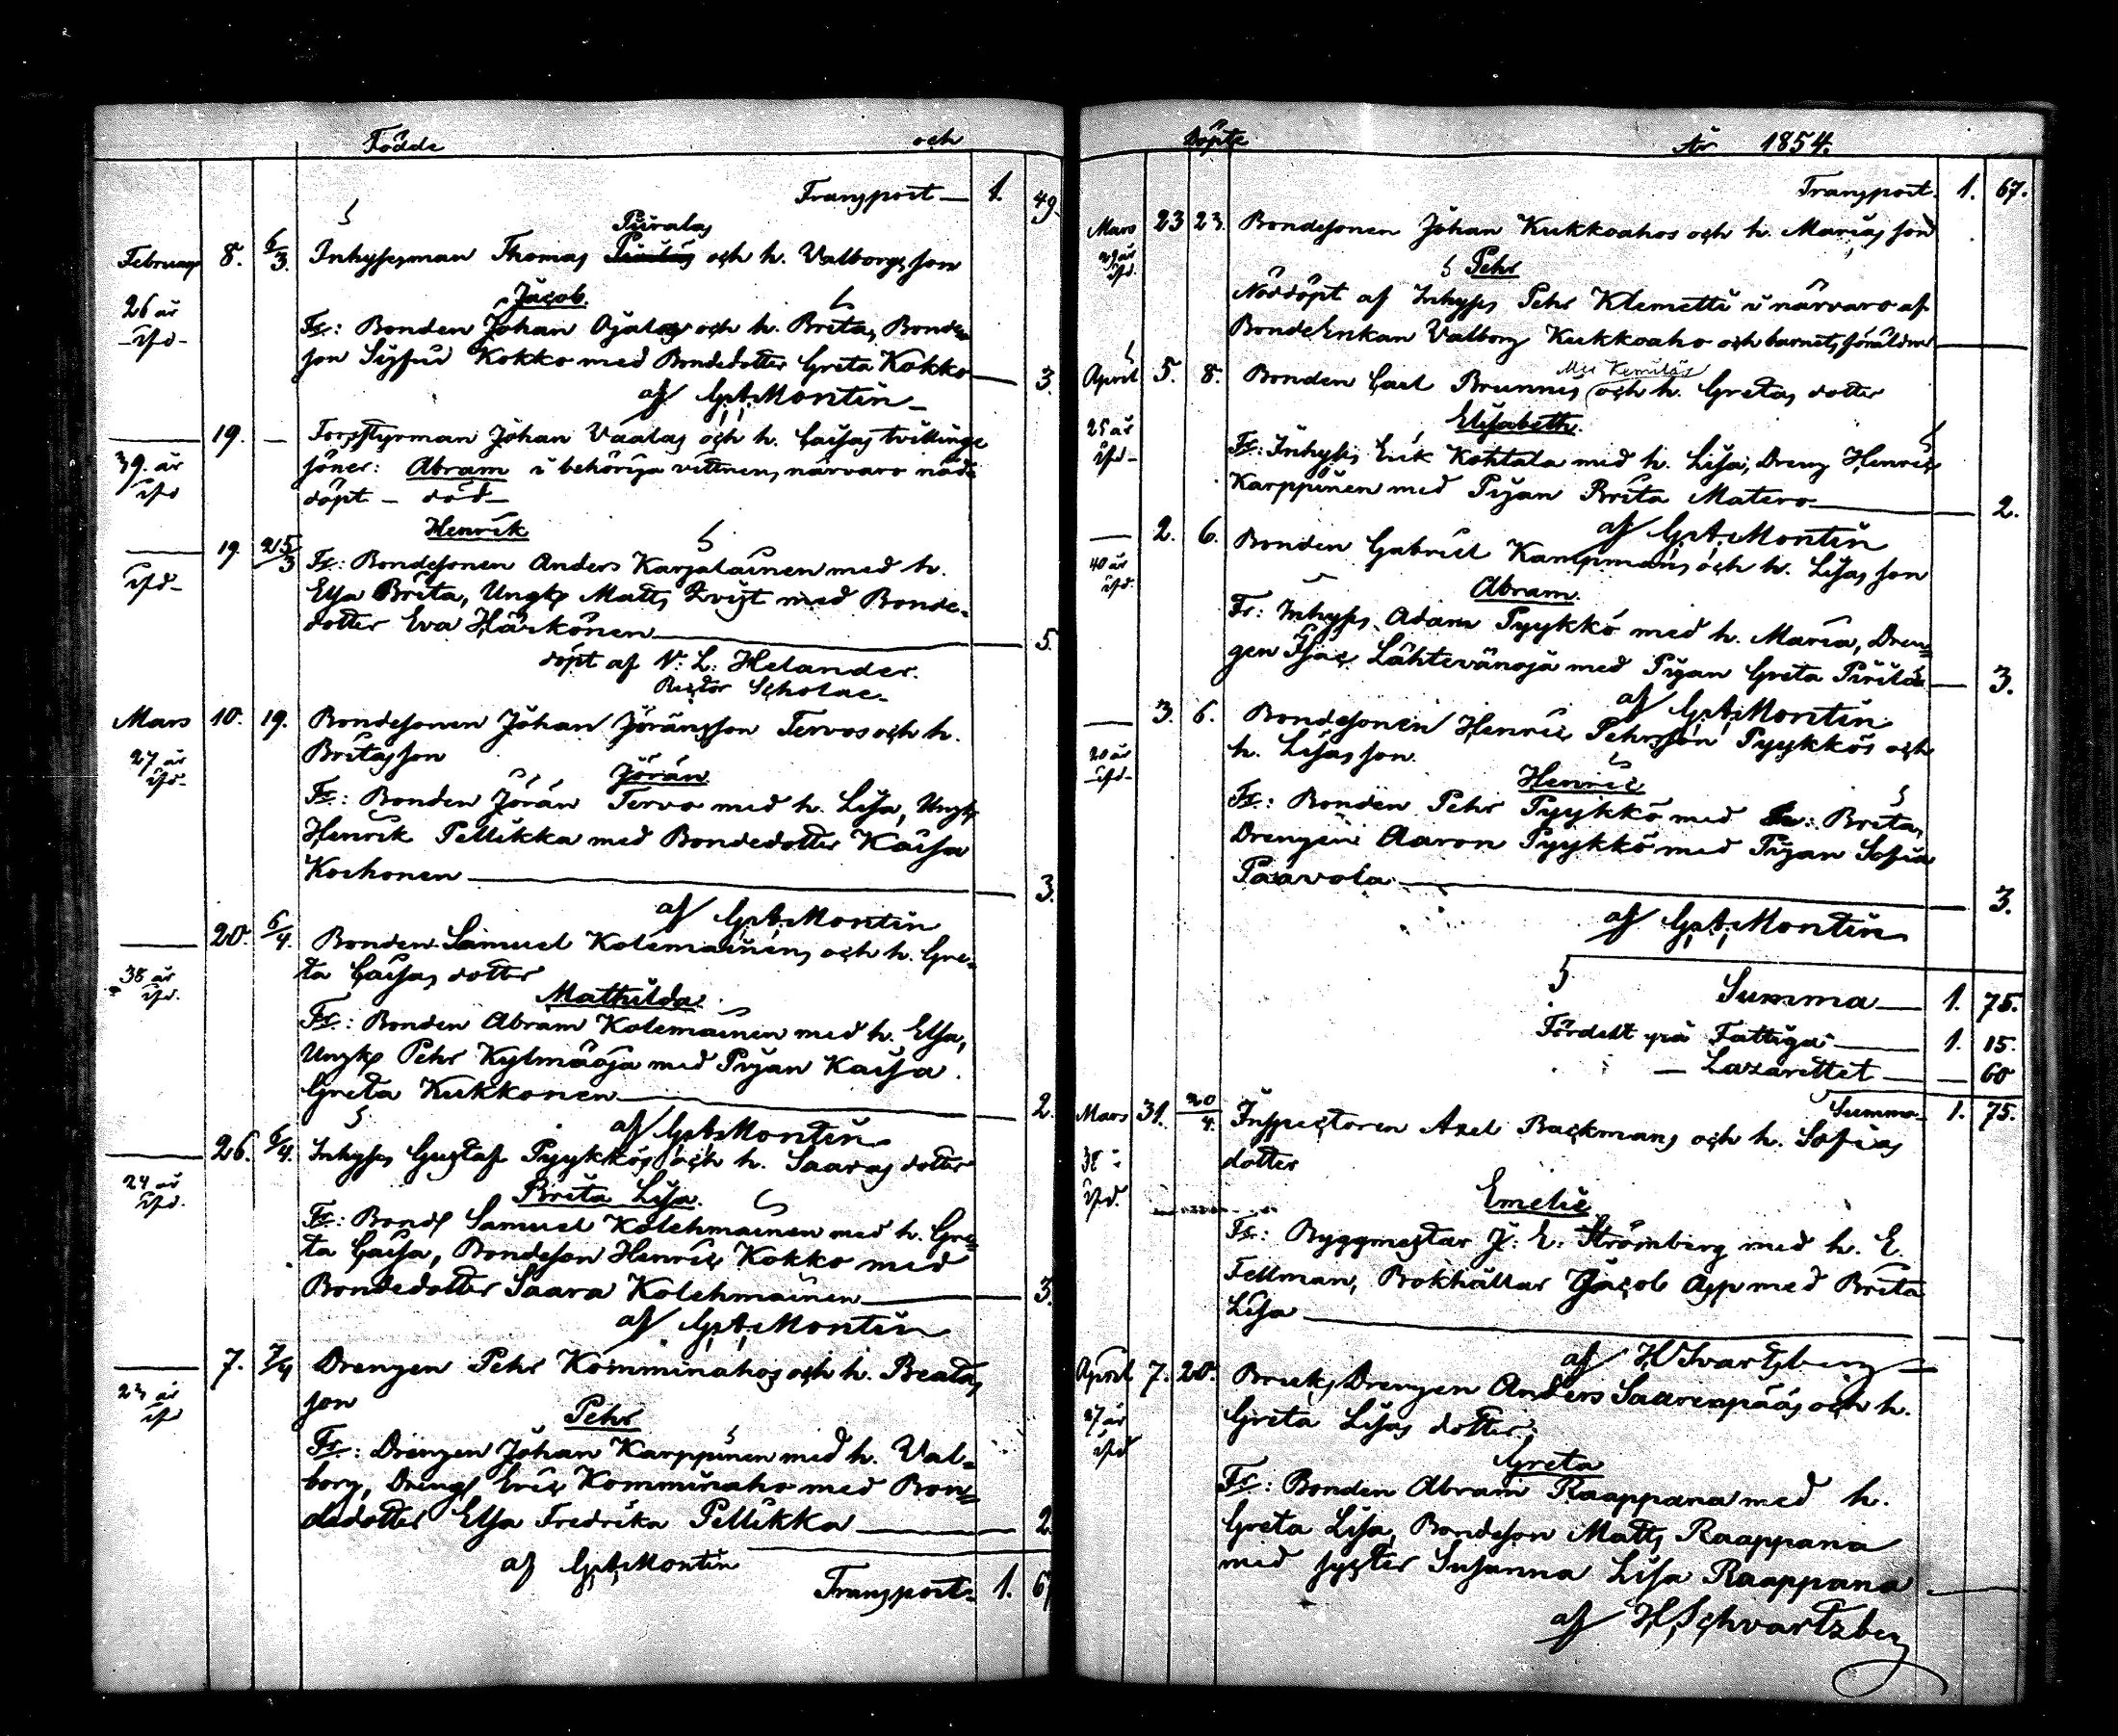 Födde och
Transport — 1. 49.
Puralas
Februari 8. 5/3. Inhysesman Thomas och h. Valborgs son
26 år Jacob.
Fr: Bonden Johan Ojalas och h. Brita, Bonde-
son Sigfrid Kokko med Bondedotter Greta Kokko — 3.
af G. A. Montin —
19. — Forsstyrman Johan Vaalas och h. Caisas tvillinge
39. år söner: Abram i behöriga vittnens närvaro nöd
döpt — död —
Henrik
19 25/3 Fr: Bondesonen Anders Karjalainen med h.
Elsa Brita, Ungk. Matts Qvist med Bonde-
dotter Eva Härkönen — 5.
döpt af N. L. Helander.
Rector Scholae.
Mars 10. 19. Bondesonen Johan Jöransson Tervos och h.
27 år Britas son
Jöran
Fr: Bonden Jöran Tervo med h. Lisa, Ungk
Henrik Pellikka med Bondedotter Kaisa
Korhonen — 3.
af G. A. Montin
20. 6/4. Bonden Samuel Kolemainens och h. Gre-
38 år ta Caisas dotter
Mathilda.
Fr: Bonden Abram Kolemainen med h. Elsa,
Ungk Pehr Kylmäoja med Pigan Kaisa
Greta Kukkonen — 2.
af G. A. Montin
26. 6/4. Inhyses Gustaf Pyykkös och h. Saaras dotter
24 år Brita Lisa.
Fr: Bond Samuel Kolehmainen med h. Gre-
ta Caisa, Bondeson Henric Kokko med
Bondedotter Saara Kolehmainen — 3.
af G. A. Montin
7. 7/4 Drengen Pehr Komminahos och h. Beatas
23 år son
Pehr
Fr: Drengen Johan Karppinen med h. Val-
borg, Dreng Eric Komminaho med Bon-
dedotter Elsa Fredrika Pellikka — 2.
af G. A. Montin
Transport — 1. 67
Döpte År 1854.
Transport. 1. 67.
Mars 23 23. Bondesonen Johan Kukkoahos och h. Marias son
29 år Pehr
Nöddöpt af Inhyses Pehr Klemetti i närvaro af
BondeEnkan Valborg Kukkoaho och barnets föräldrar —
April 5. 8. Bonden Carl Brunnis och h. Gretas dotter
25 år Elisabeth.
Fr: Inhyses Erik Kohtala med h. Lisa, Dreng Henric
Karppinen med Pigan Brita Matero — 2.
af G. A. Montin
2. 6. Bonden Gabriel Kampmans och h. Lisas son
40 år Abram.
Fr: Inhyses Adam Pyykkö med h. Maria, Dren-
gen Isac Lähtevänoja med Pigan Greta Pirilä — 3.
af G. A. Montin
3. 6. Bondesonen Henric Pehrsson Pyykkös och
20 år h. Lisas son.
Henric
Fr: Bonden Pehr Pyykkö med Brita,
Drengen Aaron Pyykkö med Pigan Sofia
Paavola — 3.
af G. A. Montin
Summa — 1. 75.
Fördelt på Fattiga — 1. 15.
— Lazarettet — — 60
Summa. 1. 75.
Mars 31. 20/4. Inspectoren Axel Backmans och h. Sofias
38 dotter
Emelie
Fr: Byggmestar J. E. Strömberg med h. E.
Fellman, Bokhållar Jacob App med Brita
Lisa —
af H Svartzberg —
April 7. 20. Bruks Drengen Anders Saarenpääs och h.
27 år Greta Lisas dotter.
Greta
Fr: Bonden Abram Raappana med h.
Greta Lisa, Bondeson Matts Raappana
med syster Susanna Lisa Raappana —
af H Schvartzberg